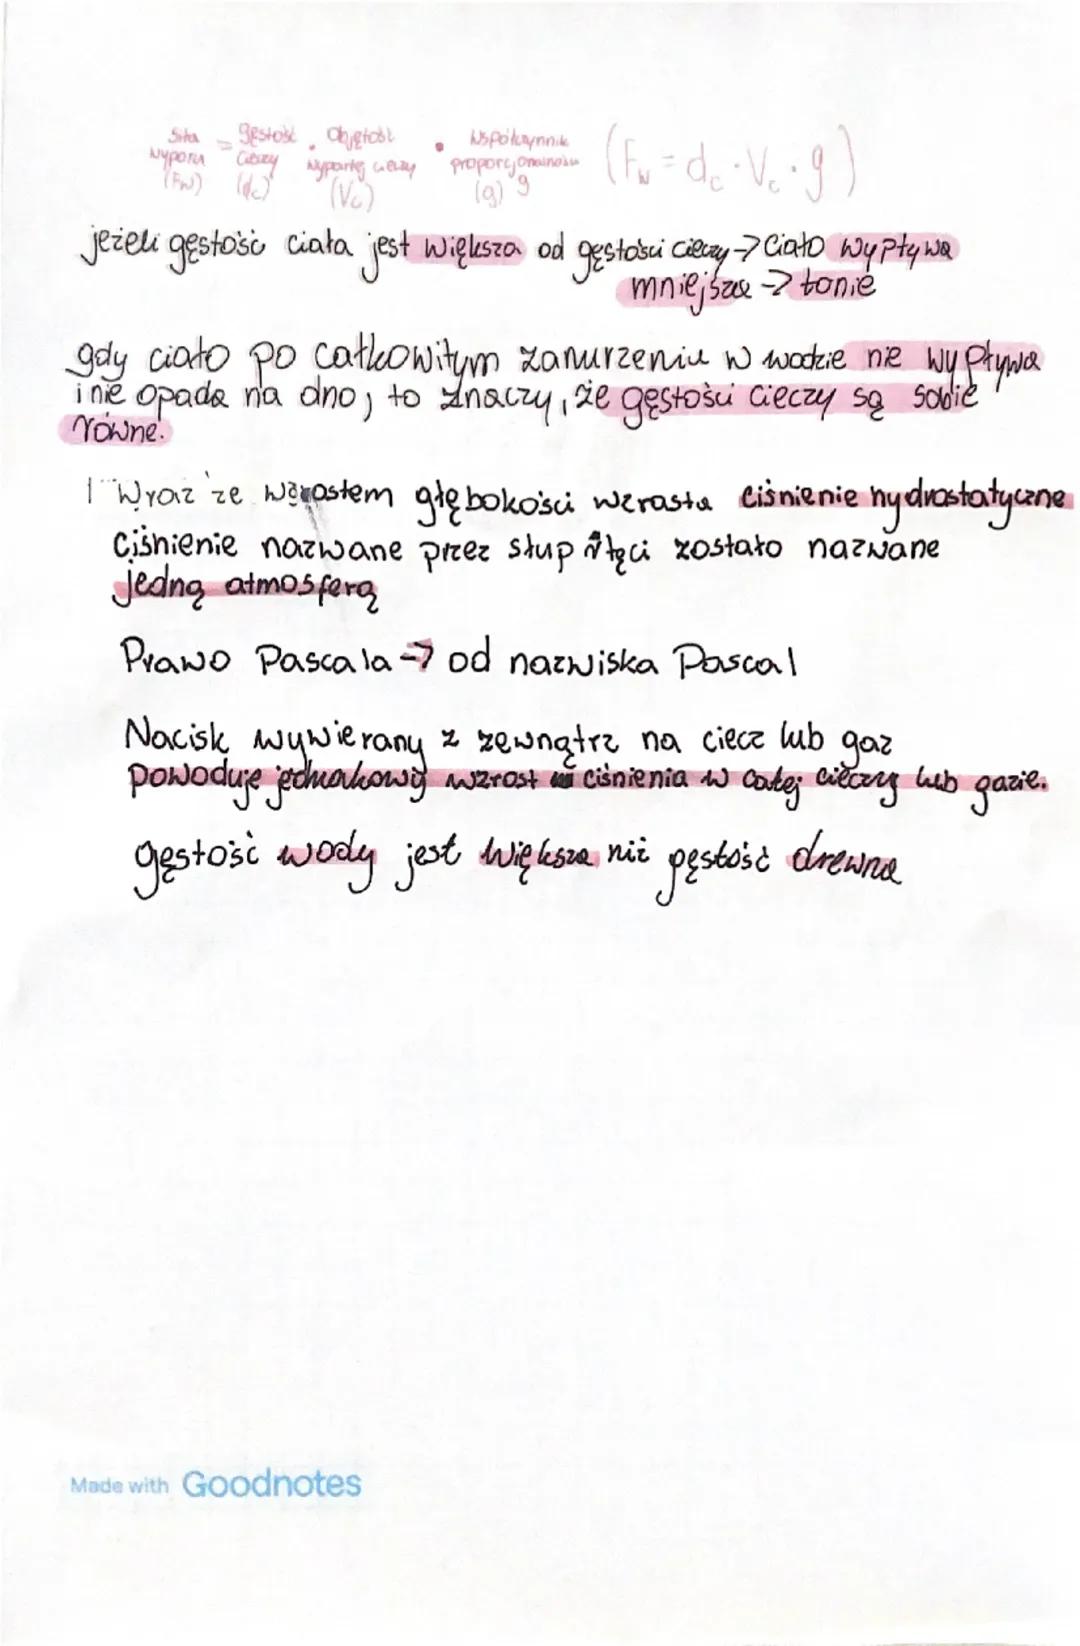 Siła wyporu (Fw) = gęstość cieczy (dc) · objętość wypartej cieczy (Vc) · współczynnik proporcjonalności (g) g (Fw = dc · Vc · g)
jeżeli gęstość ciała jest większa od gęstości cieczy → Ciało wypływa
mniejsza → tonie
gdy ciało po całkowitym zanurzeniu w wodzie nie wypływa
i nie opada na dno, to znaczy, że gęstości cieczy są sobie
równe.
Wraz ze wzrostem głębokości wzrasta ciśnienie hydrostatyczne
Ciśnienie nazwane przez słup rtęci zostało nazwane
jedną atmosferą
Prawo Pascala → od nazwiska Pascal
Nacisk wywierany z zewnątrz na ciecz lub gaz
powoduje jednakowy wzrost ciśnienia w całej cieczy lub gazie.
gęstość wody jest większa niż gęstość drewna
Made with Goodnotes